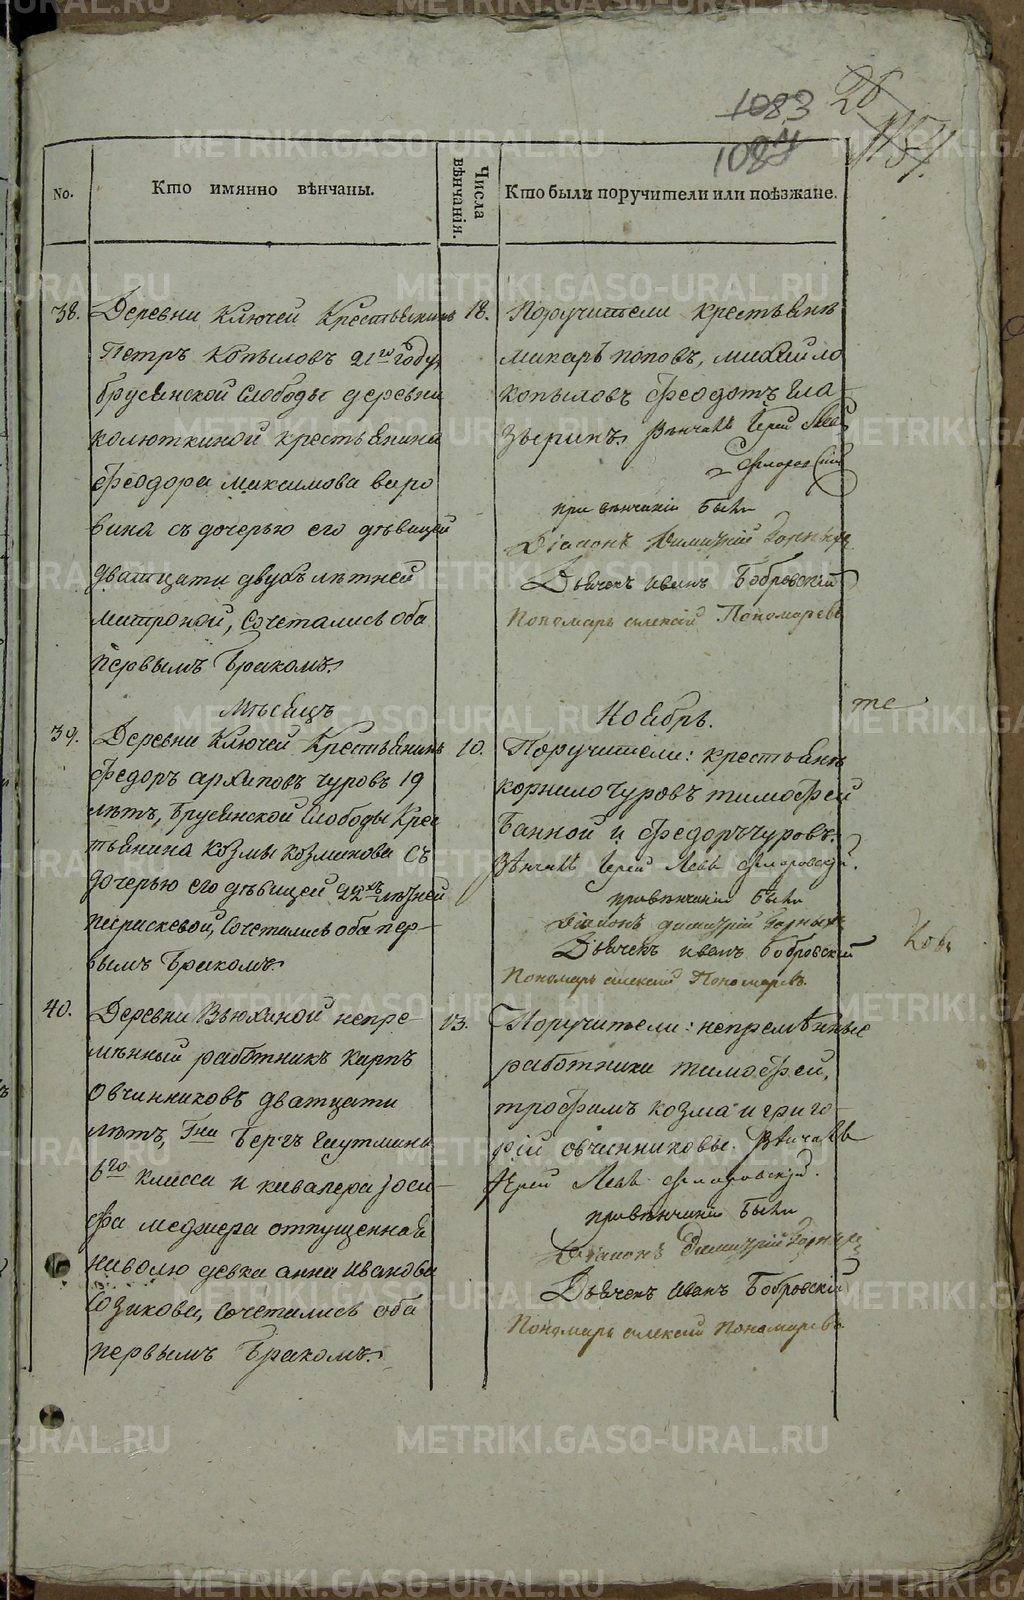 1083
1084
26
No.
Кто имянно вѣнчаны.
Числа вѣнчанія.
Кто были поручители или поѣзжане.
38.
Деревни Ключей Крестьянинъ
Петръ Копыловъ 21го году,
брусянской Слободы деревни
колюткиной крестьянина
Феодора максимова варо
вина съ дочерью его дѣвицей
дватцати двухъ лѣтней
матроной, Сочетались оба
первымъ бракомъ.
18.
Поручители крестьяне
макаръ поповъ, михайло
копыловъ феодотъ гла
зыринъ. вѣнчалъ Іерей Левъ
Флоровскій
при вѣнчаніи были
Діаконъ Димитрій
Дьячекъ Иванъ Бобровскій
Пономарь алексій Пономаревъ
Мѣсяцъ
Ноябрь.
39.
Деревни Ключей Крестьянинъ
федоръ архиповъ чуровъ 19
лѣтъ, брусянской Слободы Крес
тьянина козмы козминова Съ
дочерью его дѣвицей 22хъ лѣтней
параскевой, Сочетались оба пер-
вымъ бракомъ.
10.
Поручители: крестьяне
корнило чуровъ тимофей
банной и федоръ чуровъ.
Вѣнчалъ Іерей Левъ Флоровскій.
при вѣнчаніи были
Діаконъ димитрій
Дьячекъ иванъ бобровскій
Пономарь алексій Пономаревъ.
40.
Деревни Вьюхиной непре-
мѣнный работникъ карпъ
Овчинниковъ дватцати
лѣтъ, Гна Бергъ Гауптмана
6го класса и кавалера Іоси-
фа меджера отпущенная
наволю девка анна иванова
Созикова, Сочетались оба
первымъ бракомъ.
13.
Поручители: непремѣнные
работники тимофей,
трофимъ козма и григо-
рій овчинниковы. Вѣнчалъ
Іерей Левъ Флоровскій.
при вѣнчаніи были
Діаконъ Димитрій
Дьячекъ Иванъ Бобровскій
Пономарь алексій Пономаревъ
METRIKI.GASO-URAL.RU